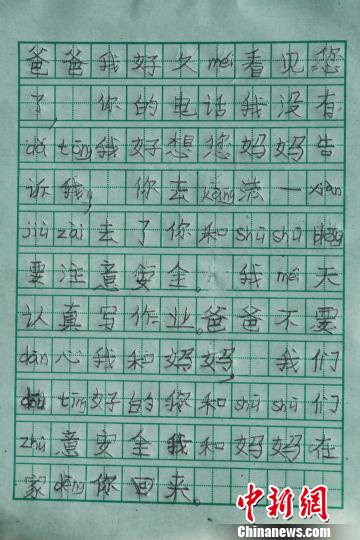 爸爸我好久mei看见您
了，你的电话我没有
dǎ tōng我好想您妈妈告
诉我，你去kàng洪一xiàn
jiù zāi去了你和shū shū
要注意安全。我mei天
认真写作业。爸爸不要
dān心我和妈妈，我们
tīng好的您和shū shū们
zhù意安全我和妈妈在
家děng你回来。
中新网
www.chinanews.com